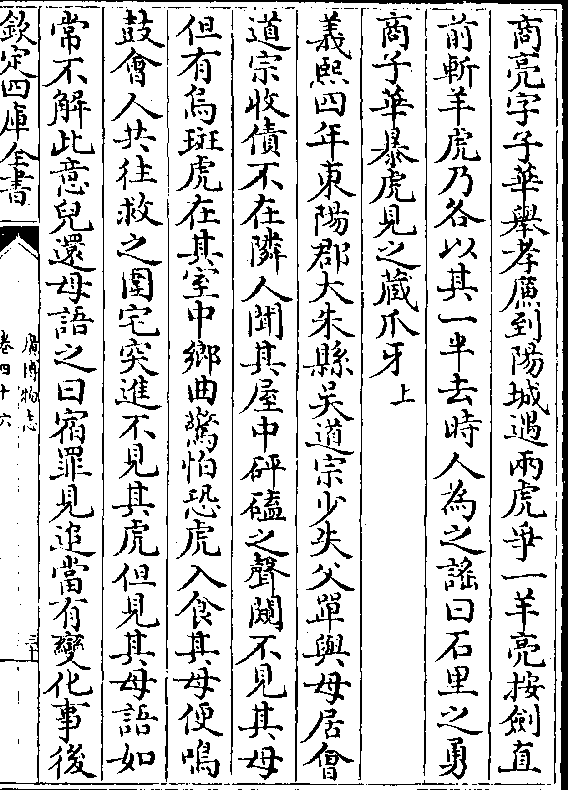 商亮字子華舉孝廉到陽城遇兩虎爭一羊亮按劍直
前斬羊虎乃各以其一半去時人為之謠曰石里之勇
商子華暴虎見之藏爪牙上
義熙四年東陽郡大朱縣吳道宗少失父單與母居會
道宗收債不在隣人聞其屋中砰磕之聲闚不見其母
但有烏斑虎在其室中鄉曲驚怕恐虎入食其母便鳴
鼓會人共往救之圍宅突進不見其虎但見其母語如
常不解此意兒還母語之曰宿罪見追當有變化事後
欽定四庫全書
廣博物志
卷四十六